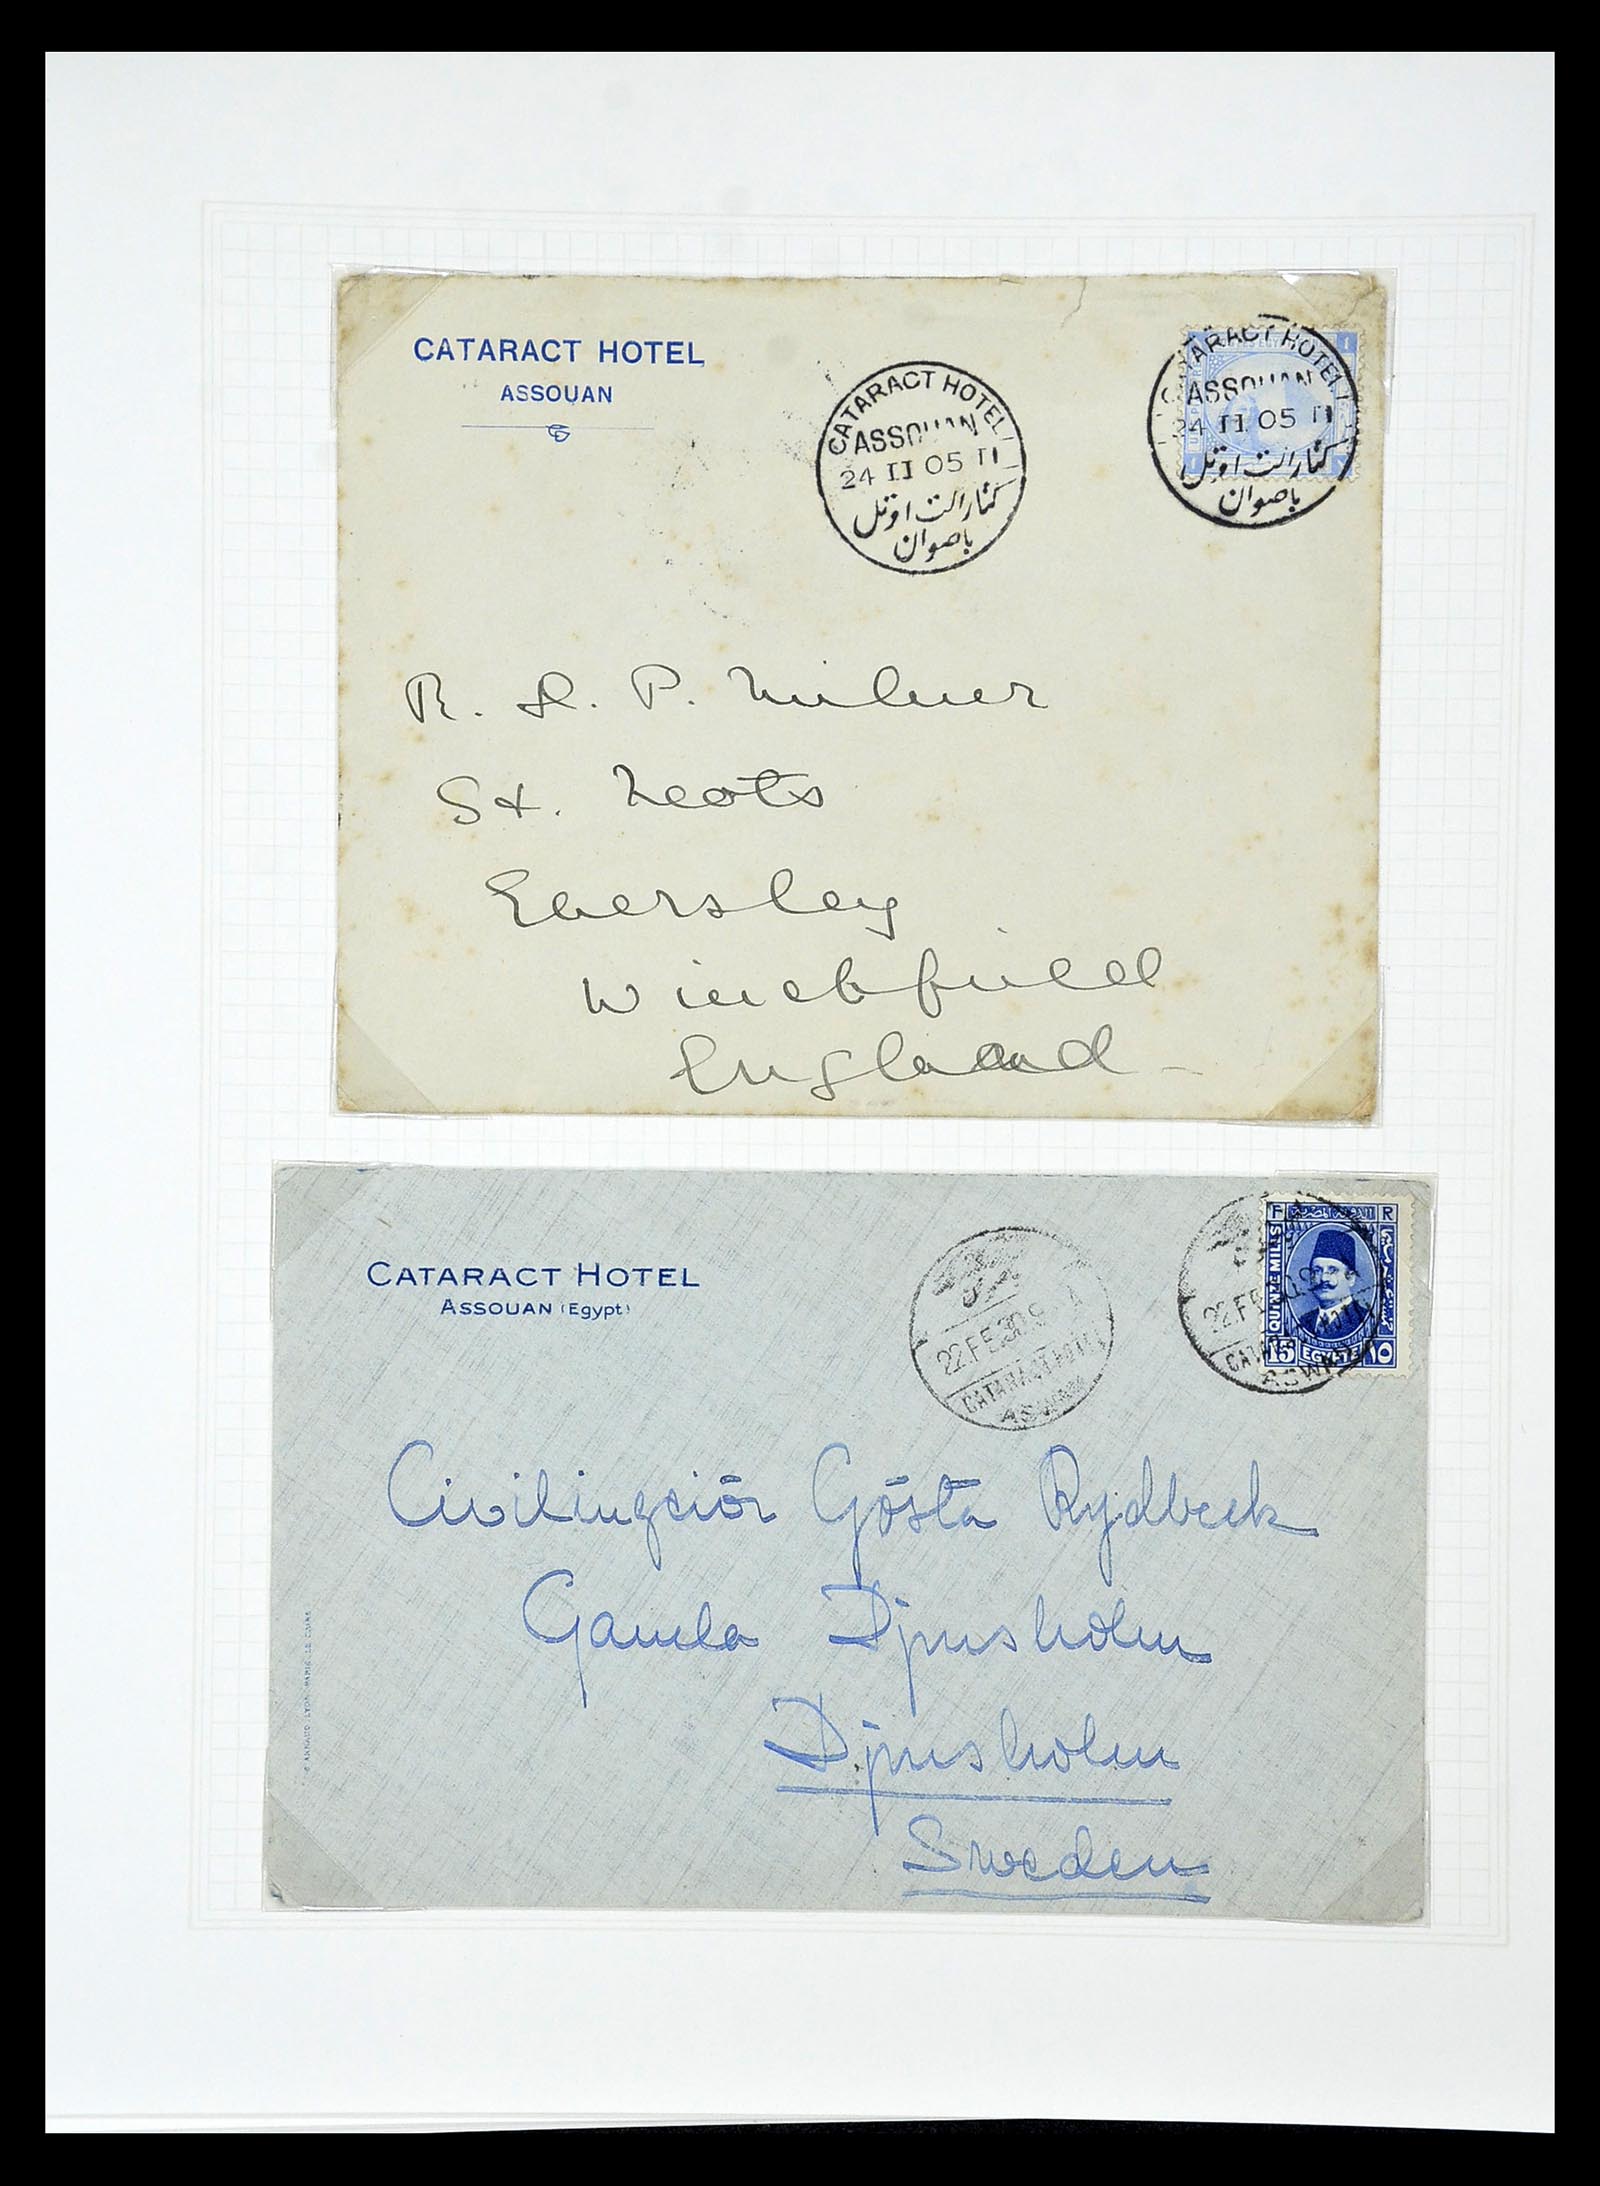 CATARACT HOTEL
ASSOUAN
CATARACT HOTEL
ASSOUAN
24 II 05 II
كتاراكت اوتل
باصوان
CATARACT HOTEL
ASSOUAN
24 II 05 II
كتاراكت اوتل
باصوان
R. H. P. Milner
St. Neots
Eversley
Winchfield
England
CATARACT HOTEL
ASSOUAN (Egypt)
22.FE.30.9
CATARACT HOTEL
ASWAN
F R
QUINZE MILLS
15 EGYPTE ١٥
22.FE
ASWAN
Civilingeniör Gösta Rydbeck
Gamla Djursholm
Djursholm
Sweden